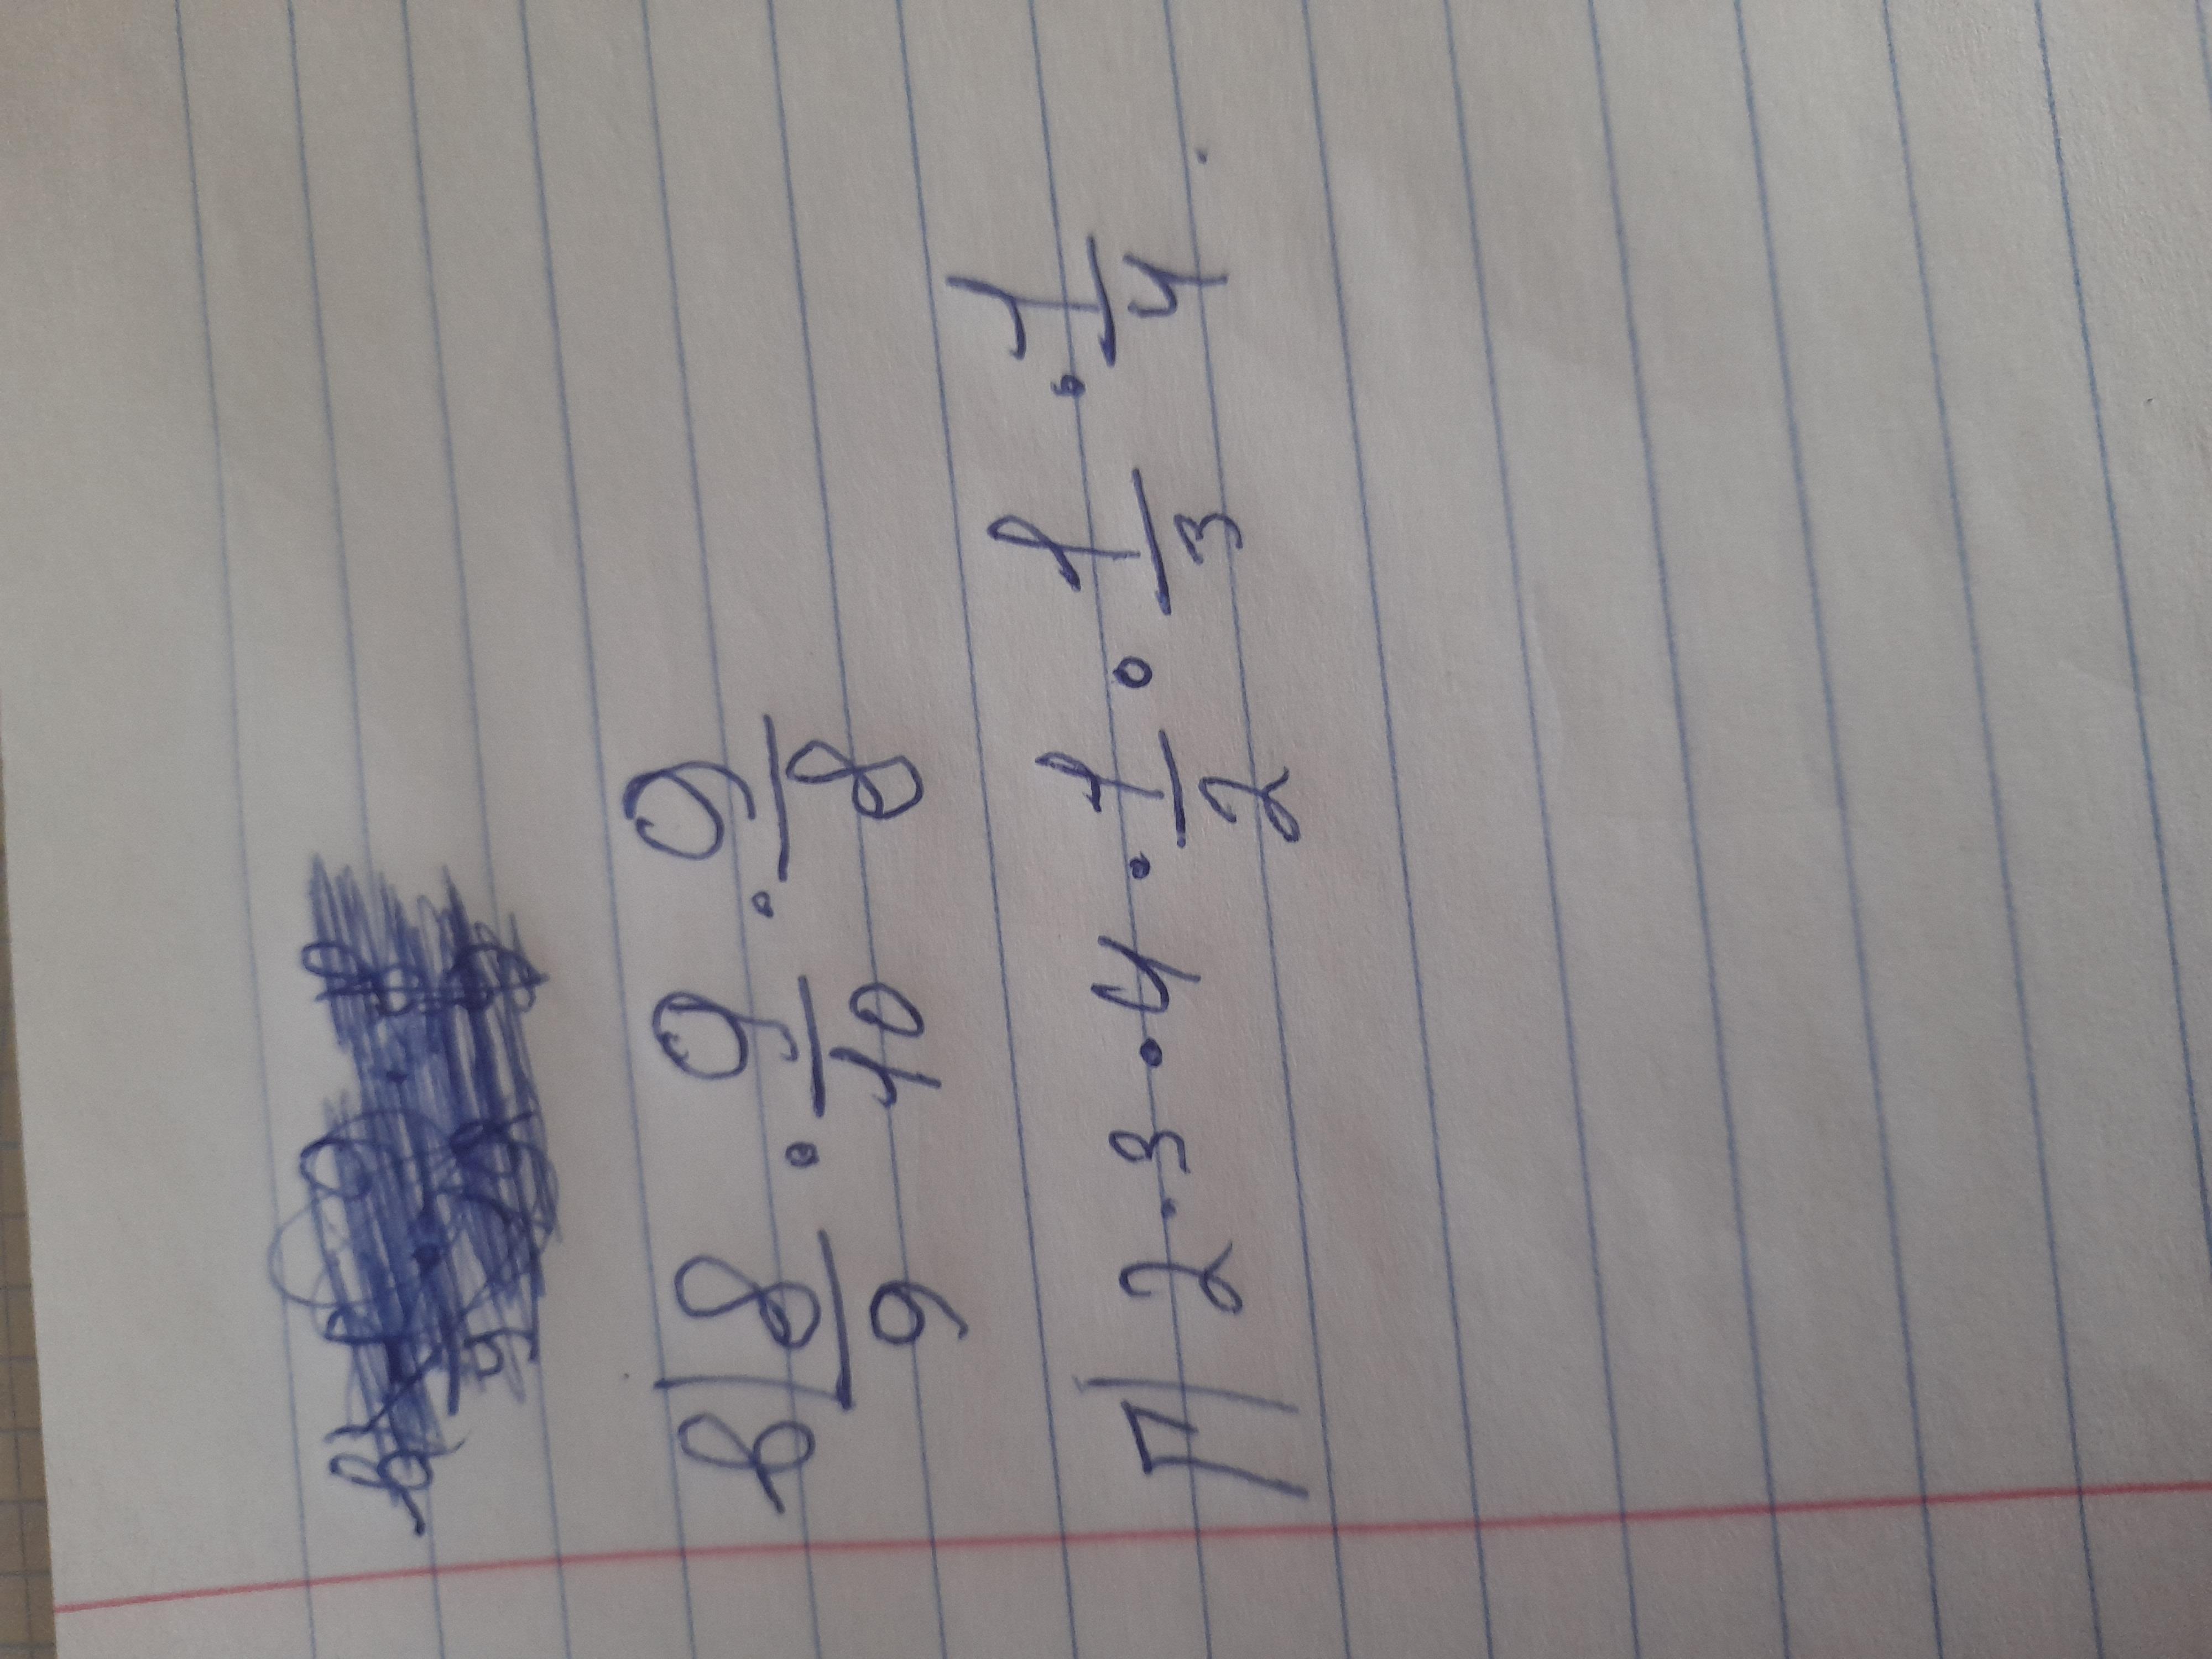 в) 8/9 · 9/10 · 9/8
П) 2·3·4·1/2·1/3·1/4.